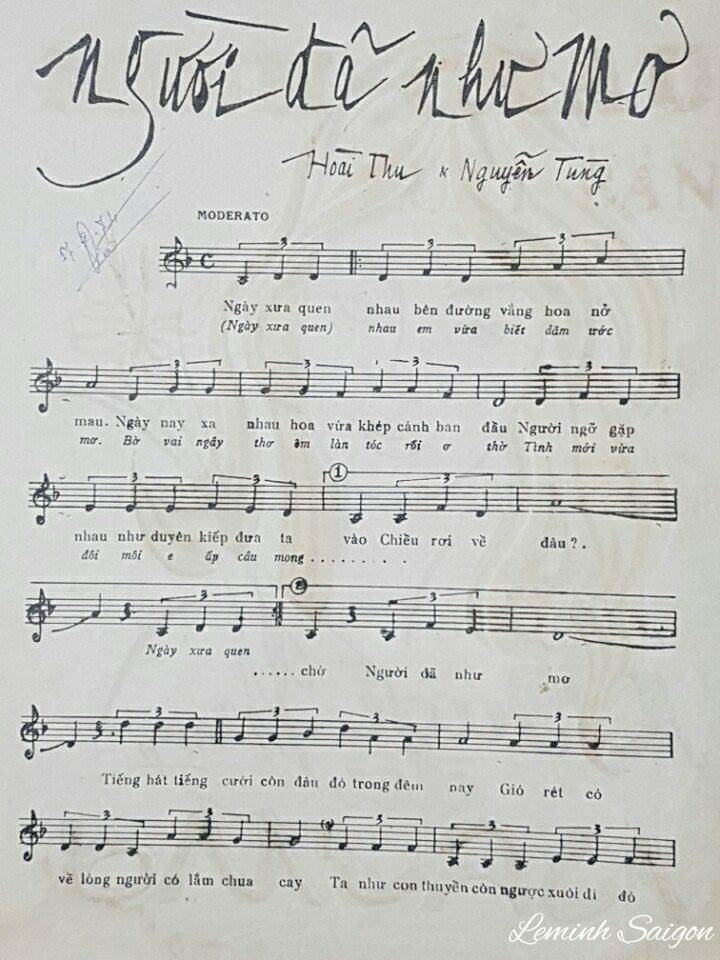 Người đã như mơ
Hoài Thu x Nguyễn Tùng
MODERATO
3 3 3
Ngày xưa quen nhau bên đường vắng hoa nở
(Ngày xưa quen) nhau em vừa biết dăm ước
3 3 3 3
mau. Ngày nay xa nhau hoa vừa khép cánh ban đầu Người ngỡ gặp
mơ. Bờ vai ngây thơ êm làn tóc rối ơ thờ Tình mới vừa
3 3 1 3
nhau như duyên kiếp đưa ta vào Chiều rơi về đâu?.
đôi môi e ấp câu mong..........
3 2 3
Ngày xưa quen
......chờ Người đã như mơ
3 3 3 3
Tiếng hát tiếng cười còn đâu đó trong đêm nay Gió rét có
3 3 3 3 3
về lòng người có lắm chua cay Ta như con thuyền còn ngược xuôi đi đó
Leminh Saigon